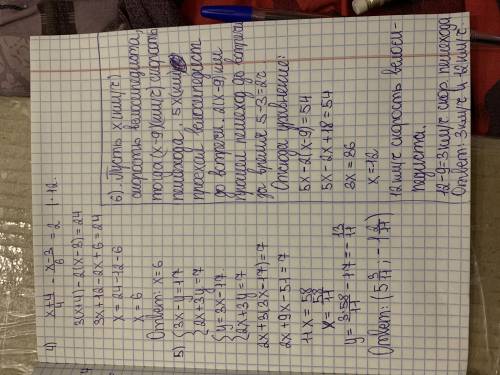 4) x+4/4 - x-3/6 = 2 | · 12
3(x+4) - 2(x-3) = 24
3x+12-2x+6=24
x = 24-12-6
x = 6
Ответ: x=6
5) { 3x-y=17
{ 2x+3y=7
{ y=3x-17
{ 2x+3y=7
2x+3(3x-17)=7
2x+9x-51=7
11x=58
x = 58/11
y = 3·58/11 - 17 = - 13/11
Ответ: (5 3/11; -1 2/11)
6). Пусть x(км/ч)
скорость велосипедиста,
тогда (x-9)(км/ч) скорость
пешехода. 5x(км)
проехал велосипедист
до встречи. 2(x-9)км
прошел пешеход до встречи
за время 5-3=2ч
Отсюда уравнение:
5x-2(x-9)=54
5x-2x+18=54
3x=36
x=12
12 км/ч скорость велоси-
педиста.
12-9=3км/ч скор. пешехода
Ответ: 3км/ч и 12км/ч.
4